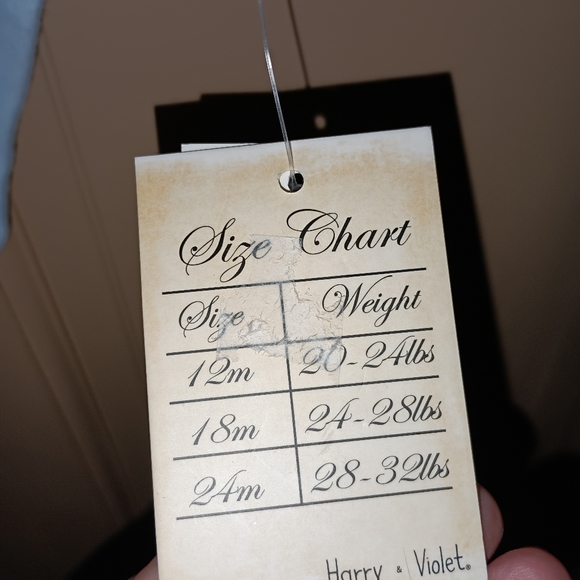 Size Chart
Size Weight
12m 20-24lbs
18m 24-28lbs
24m 28-32lbs
Harry & Violet®